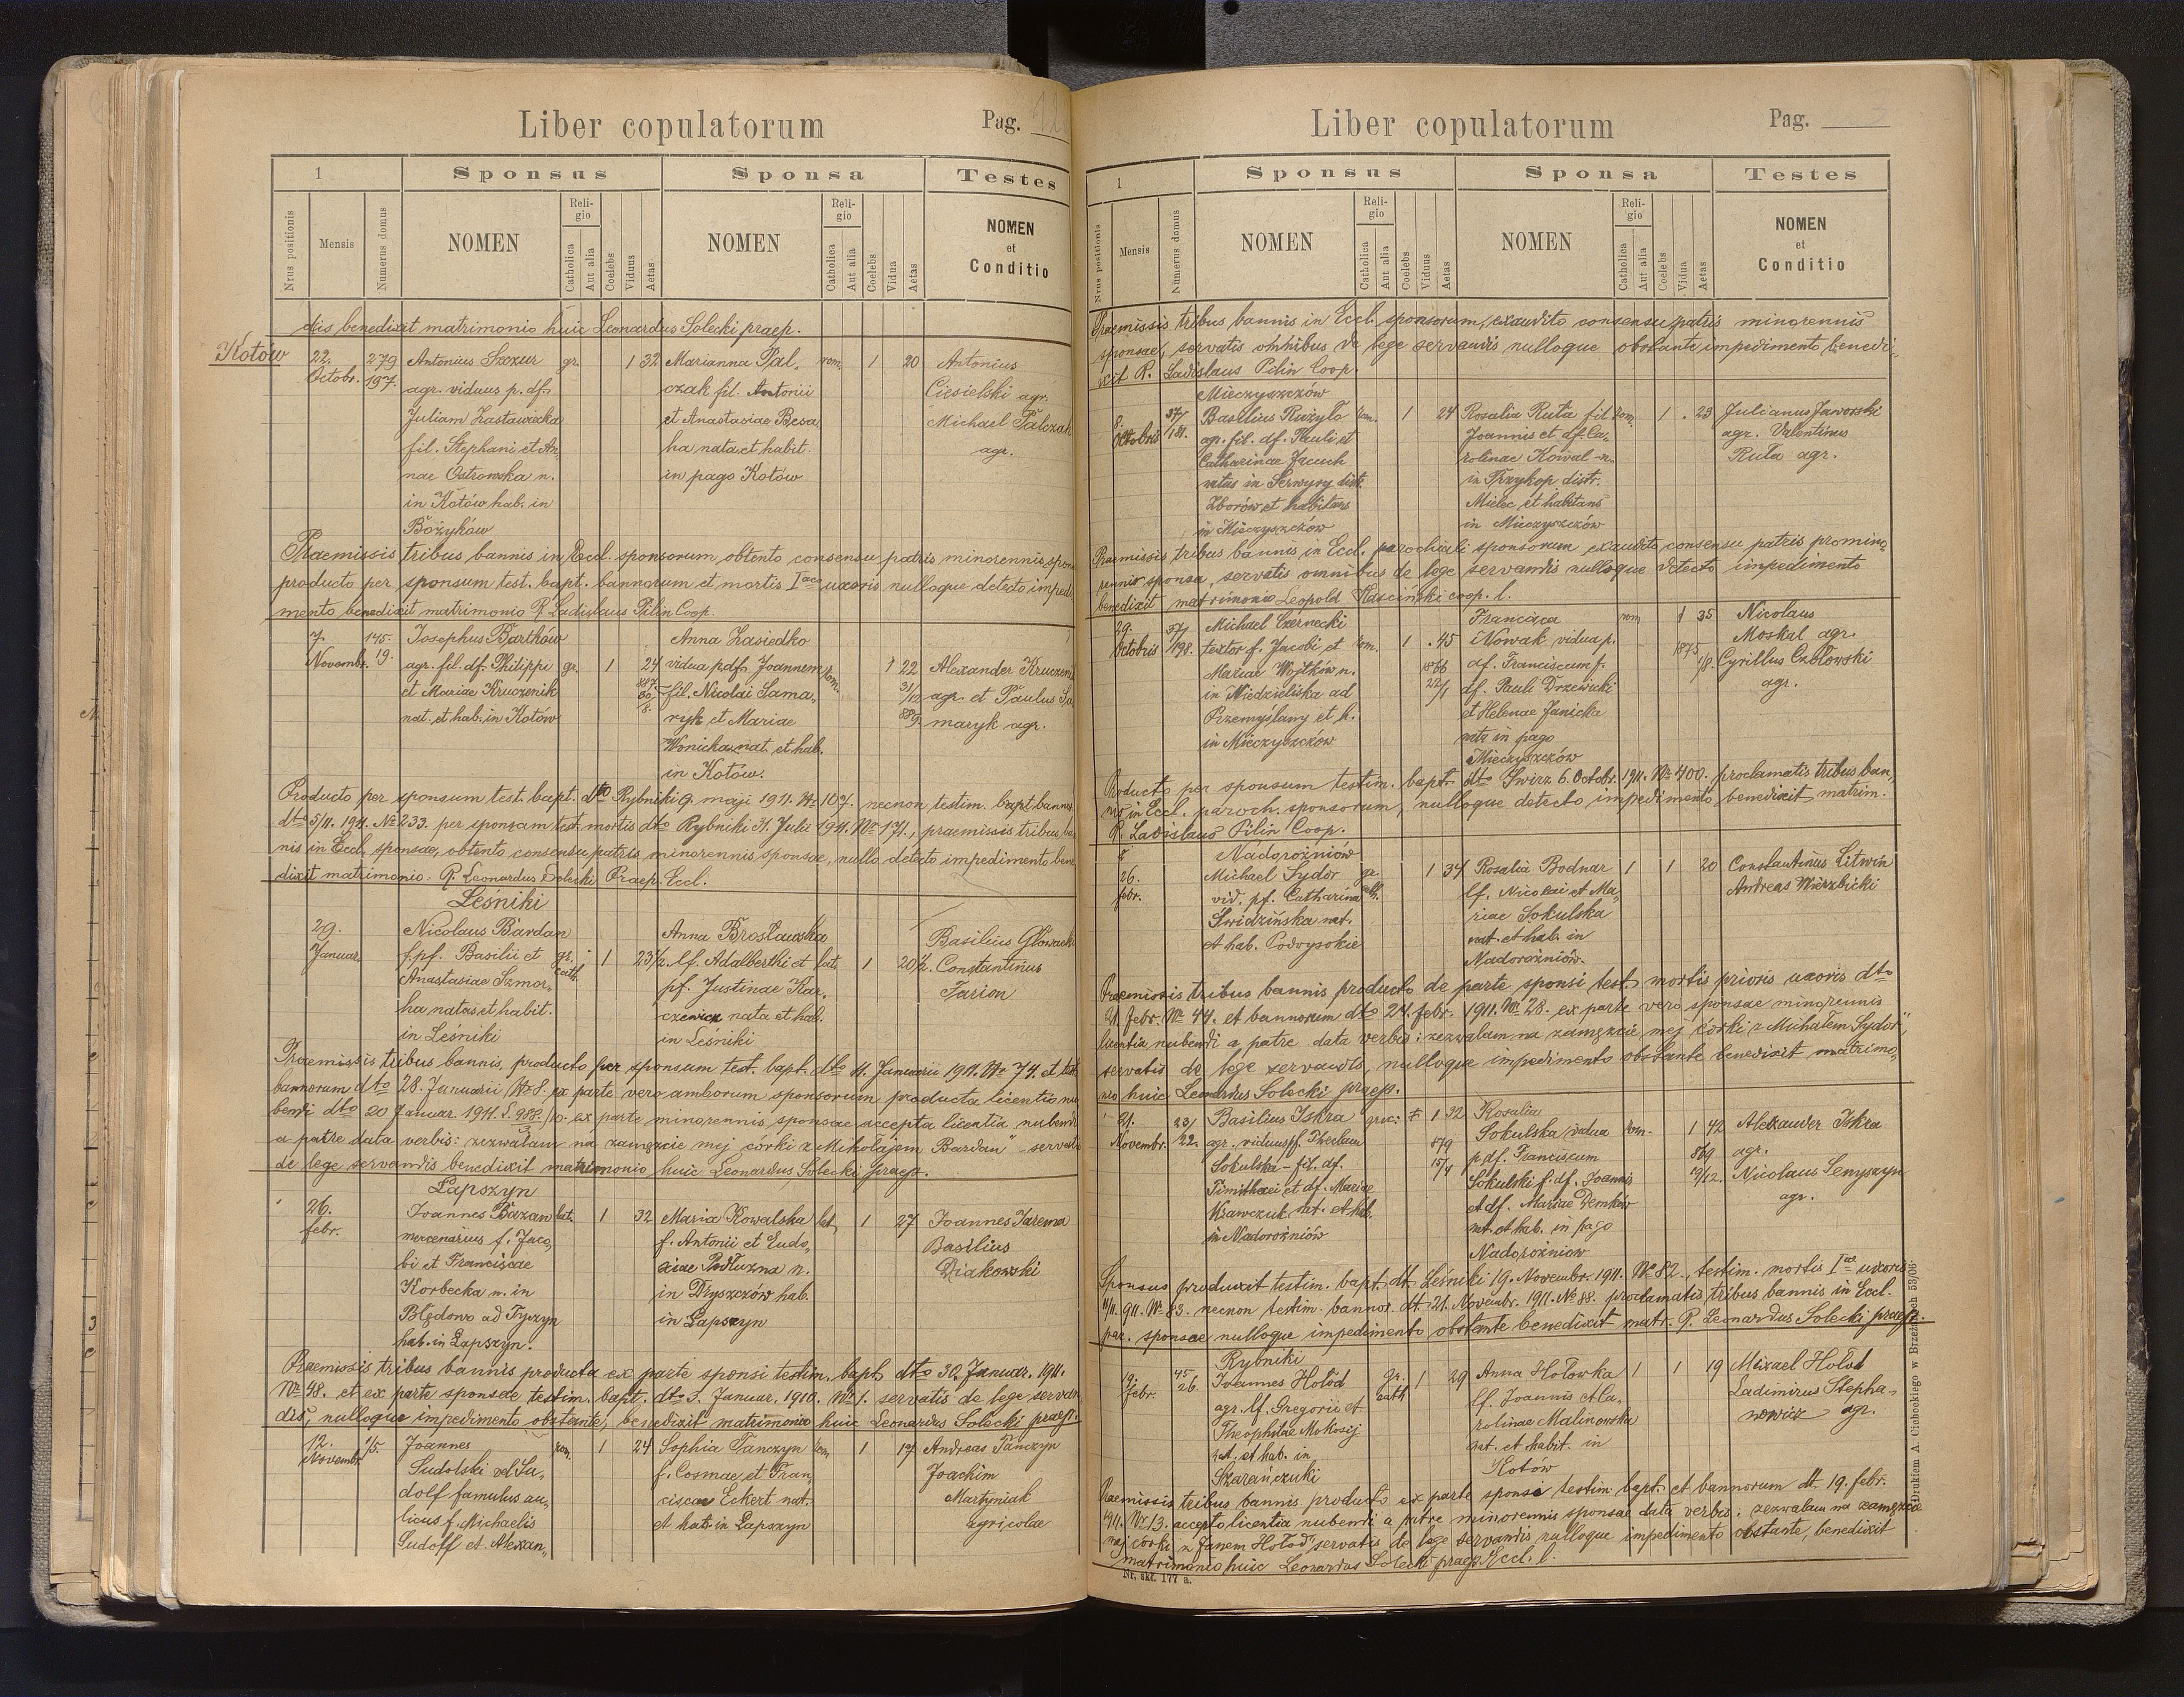 Liber copulatorum Pag.
1 Sponsus Sponsa Testes
Nrus positionis Mensis Numerus domus NOMEN Religio Catholica Aut alia Coelebs Viduus Aetas NOMEN Religio Catholica Aut alia Coelebs Vidua Aetas NOMEN et Conditio
dis benedixit matrimonio huic Leonardus Solecki praep.
Kotów
22. 279 Antonius gr. 1 32 Marianna Pal- rom. 1 20 Antonius
Octobr. 197. agr. viduus p. df. czak fil. Antonii Ciesielski agr.
Juliam Zastawiecka et Anastasiae Besa Michael Palczak
fil. Stephani et An- ha nata et habit. agr.
nae Ostrowska n. in pago Kotów
in Kotów hab. in
Bożyków
Praemissis tribus bannis in Eccl. sponsorum obtento consensu patris minorennis
producto per sponsum test. bapt. bannorum et mortis Iae uxoris nulloque detecto impedi
mento benedixit matrimonio R. Ladislaus Pilin Coop.
7. 145. Josephus Bartków Anna Zasiedko
Novembr. 19. agr. fil. df. Philippi gr. 1 24 vidua p df. Joannem rom. 1 22 Alexander
et Mariae Kruczenik fil. Nicolai Sama- agr. et Paulus Sa
nat. et hab. in Kotów ryk et Mariae maryk agr.
Wonicka nat. et hab.
in Kotów.
Producto per sponsum test. bapt. dto Rybniki 9. maji 1911. Nr 107. necnon testim. bapt. bannor.
dto 5/11. 1911. No 233. per sponsam test. mortis dto Rybniki 31. Julii 1911. Nr 171., praemissis tribus ban
nis in Eccl. sponsae, obtento consensu patris minorennis sponsae, nullo detecto impedimento bene
dixit matrimonio. R. Leonardus Solecki Praep. Eccl.
Leśniki
29. Nicolaus Bardan Anna Brosławska Basilius
Januar. f. pf. Basilii et gr. cath. 1 23½ lf. Adalberthi et lat. 1 20½ Constantinus
Anastasiae Szmor- pf. Justinae Kar- Tarion
ha natus et habit. czewicz nata et hab.
in Leśniki in Leśniki
Praemissis tribus bannis, producto per sponsum test. bapt. dto 11. Januarii 1911. No 74. et test.
bannorum dto 28. Januarii No 8. ex parte vero amborum sponsorum producta licentia nu
bendi dto 20 Januar. 1911. L. 988. ex parte minorennis, sponsae accepta licentia nubendi
a patre data verbis: zezwalam na zamęzcie mej córki z Mikołajem Bardan" servatis
de lege servandis benedixit matrimonio huic Leonardus Solecki praep.
Łapszyn
26. Joannes Bazan lat. 1 32 Maria Kowalska lat. 1 27 Joannes Jarema
febr. mercenarius f. Jaco- f. Antonii et Eudo- Basilius
bi et Franciscae xiae Podłuzna n. Diakowski
Korbecka n. in in Dryszczów hab.
Błędowo ad Tyczyn in Łapszyn
hab. in Łapszyn.
Praemissis tribus bannis producta ex parte sponsi testim. bapt. dto 30. Januar. 1911.
No 48. et ex parte sponsae testim. bapt. dto 3. Januar. 1910. No 1. servatis de lege servan
dis, nulloque impedimento obstante, benedixit matrimonio huic Leonardus Solecki praep.
12. 1/5 Joannes rom. 1 24 Sophia Tanczyn rom. 1 17 Andreas Tanczyn
Novembr. Sudolski vel Su- f. Cosmae et Fran- Joachim
dolf famulus au- ciscae Eckert nat. Martyniak
licus f. Michaelis et hab. in Łapszyn agricolae
Sudolf et Alexan-
Liber copulatorum Pag.
1 Sponsus Sponsa Testes
Nrus positionis Mensis Numerus domus NOMEN Religio Catholica Aut alia Coelebs Viduus Aetas NOMEN Religio Catholica Aut alia Coelebs Vidua Aetas NOMEN et Conditio
Praemissis tribus bannis in Eccl. sponsorum, exaudito consensu patris minorennis
sponsae, servatis omnibus de lege servandis nulloque obstante impedimento, benedi-
xit R. Ladislaus Pilin Coop.
Mieczyszczów
8. 37/ Basilius Rużyło rom. 1 24 Rosalia Ruta fil. rom. 1 23 Julianus Jaworski
Octobris 181. agr. fil. df. Pauli et Joannis et df. Ca- agr. Valentinus
Catharinae Jacuch rolinae Kowal n. Ruta agr.
natus in Serwyry distr. in Przykop distr.
Zborów et habitans Mielec et habitans
in Mieczyszczów in Mieczyszczów
Praemissis tribus bannis in Eccl. parochiali sponsorum exaudito consensu patris pro mino-
rennis sponsa, servatis omnibus de lege servandis nulloque detecto impedimento
benedixit matrimonio Leopold coop. l.
29. 37/ Michael Czernecki Francisca rom 1 35 Nicolaus
Octobris 198. textor f. Jacobi et rom. 1 45 Nowak vidua p. 1875 Moskal agr.
Mariae Wojtków n. 1866 df. Franciscum f. Cyrillus Czołowski
in Niedzieliska ad 22/1 df. Pauli Drzewicki agr.
Przemyślany et h. et Helenae Janicka
in Mieczyszczów nata in pago
Mieczyszczów
Producto per sponsum testim. bapt. dto Swirz 6. Octobr. 1911. No 400. proclamatis tribus ban-
nis in Eccl. paroch. sponsorum, nulloque detecto impedimento, benedixit matrim.
R. Ladislaus Pilin Coop.
Nadorożniów
26. Michael Sydor gr. cath. 1 34 Rosalia Bodnar 1 1 20 Constantinus Litwin
febr. vid. pf. Catharina lf. Nicolai et Ma- Andreas Wierzbicki
Swidzińska nat. riae Sokulska
et hab. Podwysokie nat. et hab. in
Nadorożniów.
Praemissis tribus bannis producto de parte sponsi test. mortis prioris uxoris dto
21. febr. No 44. et bannorum dto 24. febr. 1911. No 28. ex parte vero sponsae minorennis
licentia nubendi a patre data verbis: zezwalam na zamęzcie mej córki z Michałem Sydor",
servatis de lege servandis, nulloque impedimento obstante benedixit matrimo-
nio huic Leonardus Solecki praep.
21. 23/ Basilius Iskra 1 32 Rosalia Alexander Iskra
Novembr. 22. agr. viduus pf. Theclam 879 Sokulska vidua rom. 1 42 agr.
Sokulska – fil. df. 15/4 p df. Franciscum 869 Nicolaus Senyszyn
Timithaei et df. Mariae Sokulski f. df. Joannis 19/12. agr.
Krawczuk nat. et hab. et df. Mariae Demków
in Nadorożniów nat. et hab. in pago
Nadorożniow
Sponsus produxit testim. bapt. dt. Leśniki 19. Novembr. 1911. No 82., testim. mortis Iae uxoris
11/11. 911. No 83. necnon testim. bannor. dt. 21. Novembr. 1911. No 88. proclamatis tribus bannis in Eccl.
par. sponsae nulloque impedimento obstante benedixit matr. R. Leonardus Solecki praep.
Rybniki
19. 45 Joannes Hołod gr. cath 1 29 Anna Hołowka 1 1 19 Mixael Hołod
febr. 26. agr. lf. Gregorii et lf. Joannis et Ca- Ladimirus Stepha-
Theophilae Mokosij rolinae Malinowska nowicz agr.
nat. et hab. in nat. et habit. in
Szarańczuki Kotów
Praemissis tribus bannis producto ex parte sponsi testim. bapt. et bannorum dt. 19. febr.
1911. No 13. accepto licentia nubendi a patre minorennis sponsae data verbis: zezwalam na zamęzcie
mej córki z Janem Hołod" servatis de lege servandis nulloque impedimento obstante, benedixit
matrimonio huic Leonardus Solecki praep. Eccl. l.
Nr. skł. 177 a.
Drukiem A. Cichockiego w Brzeżanach 53/06